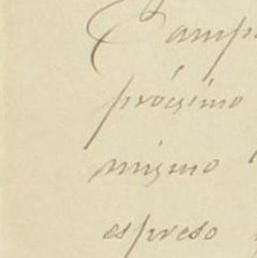 Camp
próximo
mismo
espreso